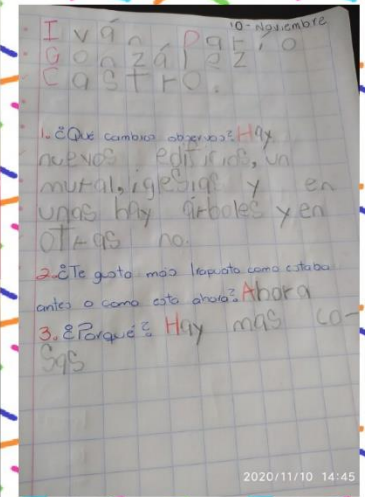 10-Noviembre
Iván Darío
González
Castro.
1.-¿Qué cambios observas? Hay
nuevos edificios, un
mural, iglesias y en
unas hay árboles y en
otras no.
2.-¿Te gusta más Irapuato como estaba
antes o como está ahora? Ahora
3. ¿Porqué? Hay mas co-
sas
2020/11/10 14:45